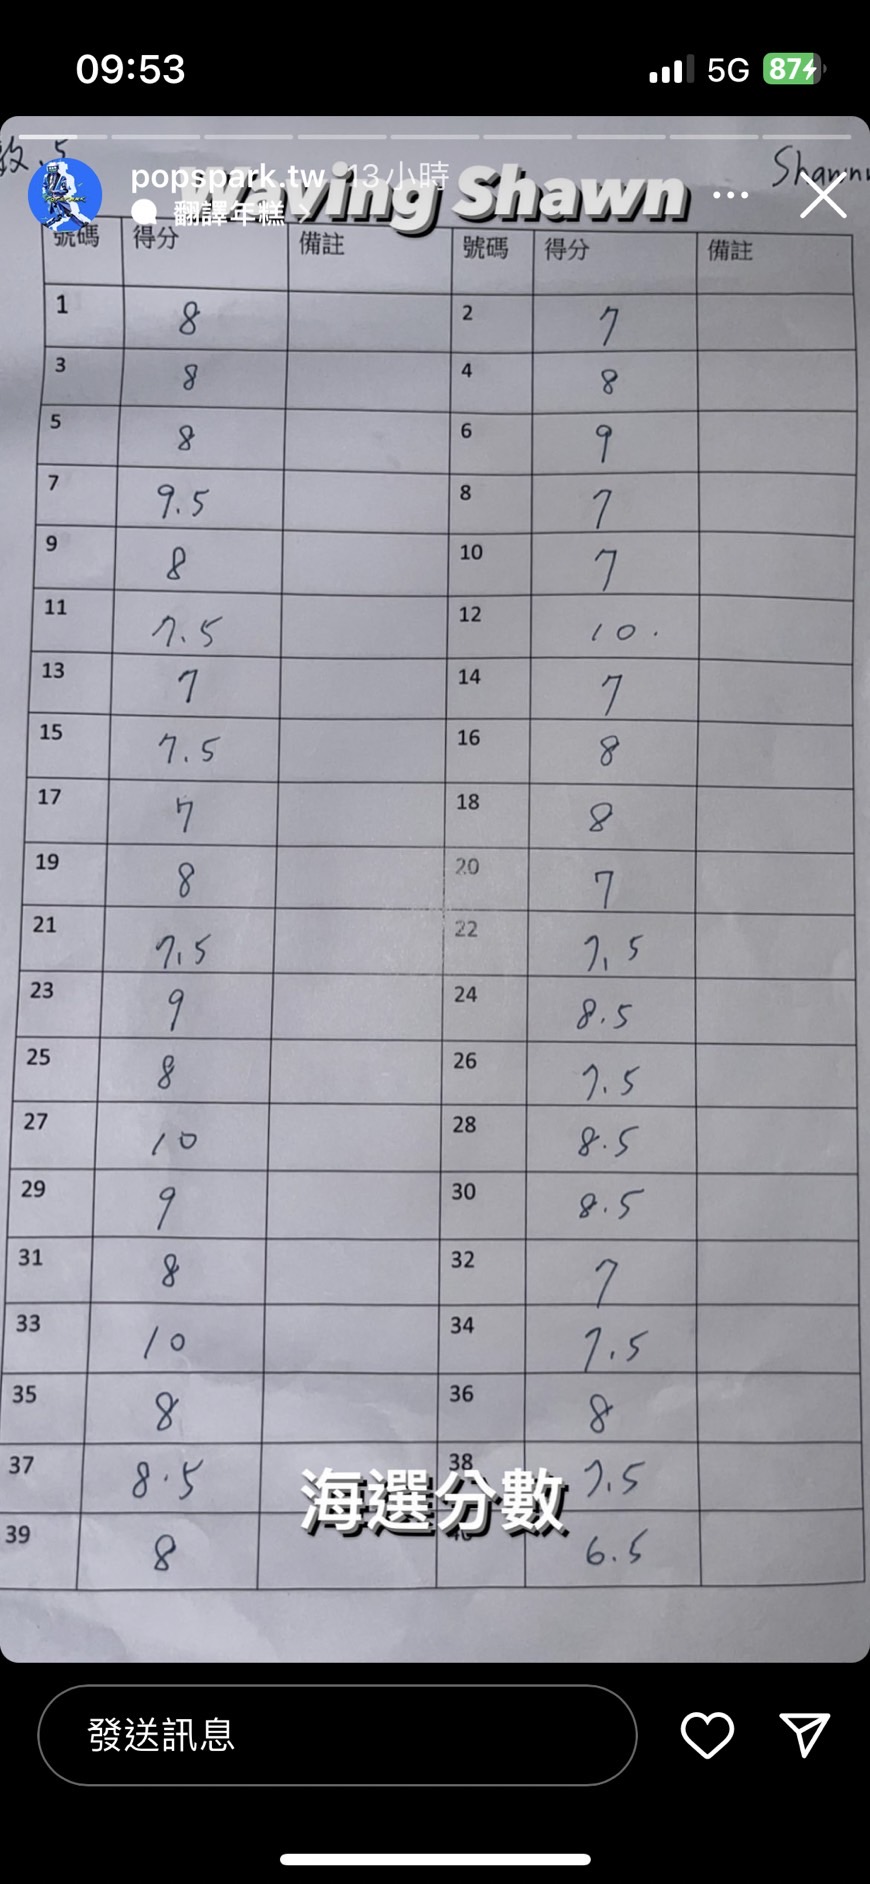 09:53
5G
87
數.5
popspark.tw 13 小時
Waving Shawn
Shawn
翻譯年糕 >
號碼 得分 備註 號碼 得分 備註
1 8 2 7
3 8 4 8
5 8 6 9
7 9.5 8 7
9 8 10 7
11 7.5 12 10.
13 7 14 7
15 7.5 16 8
17 7 18 8
19 8 20 7
21 7.5 22 7.5
23 9 24 8.5
25 8 26 7.5
27 10 28 8.5
29 9 30 8.5
31 8 32 7
33 10 34 7.5
35 8 36 8
37 8.5 38 7.5
39 8 40 6.5
海選分數
發送訊息